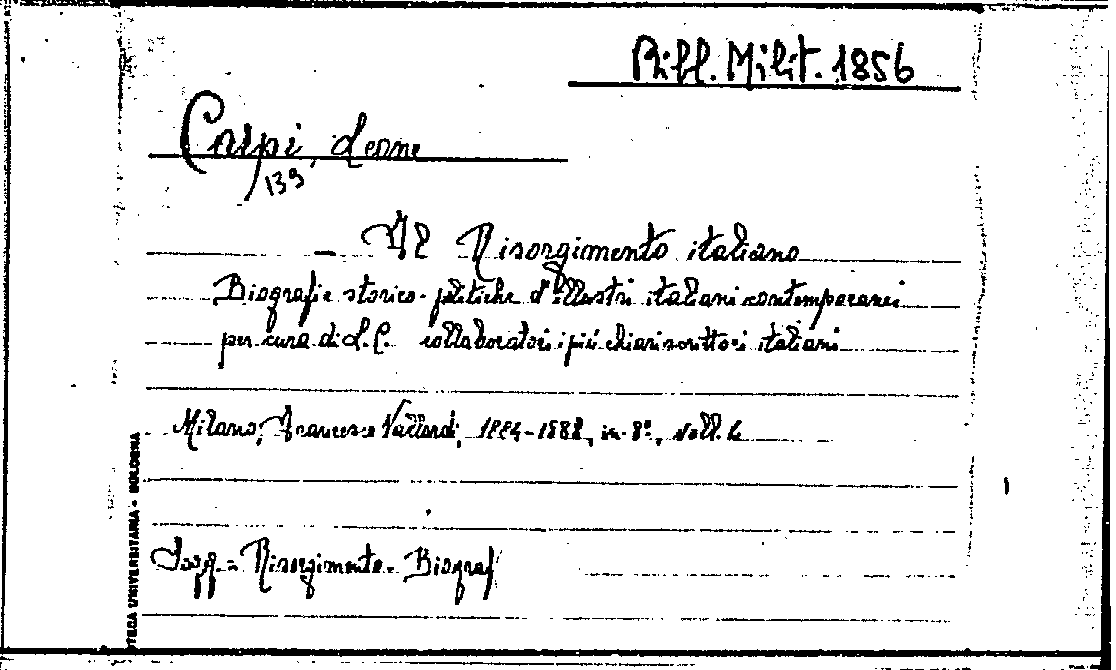 Bibl. Milit. 1856
Carpi, Leone
139
- Il Risorgimento italiano
Biografie storico-politiche d'illustri italiani contemporanei
per cura di L.C. collaboratori i più chiari scrittori italiani
Milano, Francesco Vallardi, 1884-1888, in-8°, voll. 4
Sogg. = Risorgimento - Biograf
TECA UNIVERSITARIA - BOLOGNA